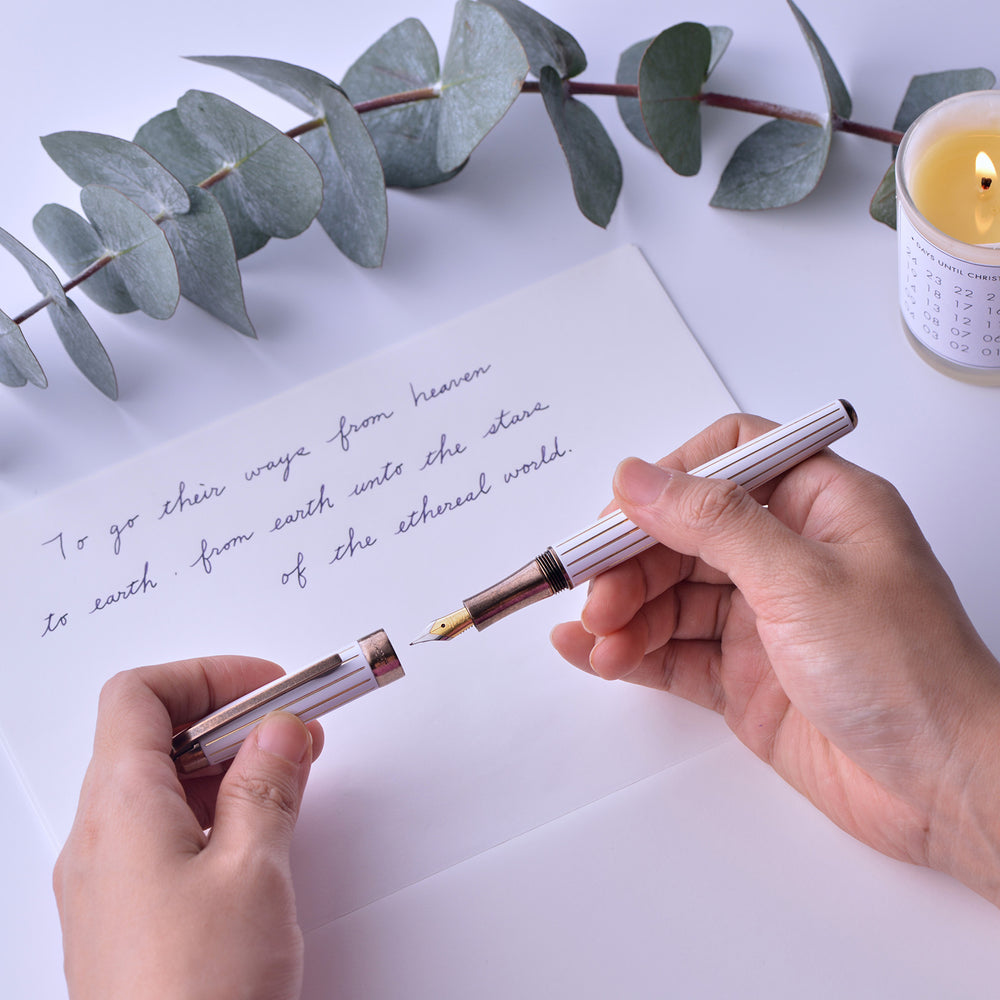 To go their ways from heaven
to earth. from earth unto the stars
of the ethereal world.
DAYS UNTIL CHRIST
24 23 22 2
19 18 17 16
14 13 12 11
09 08 07 06
04 03 02 01